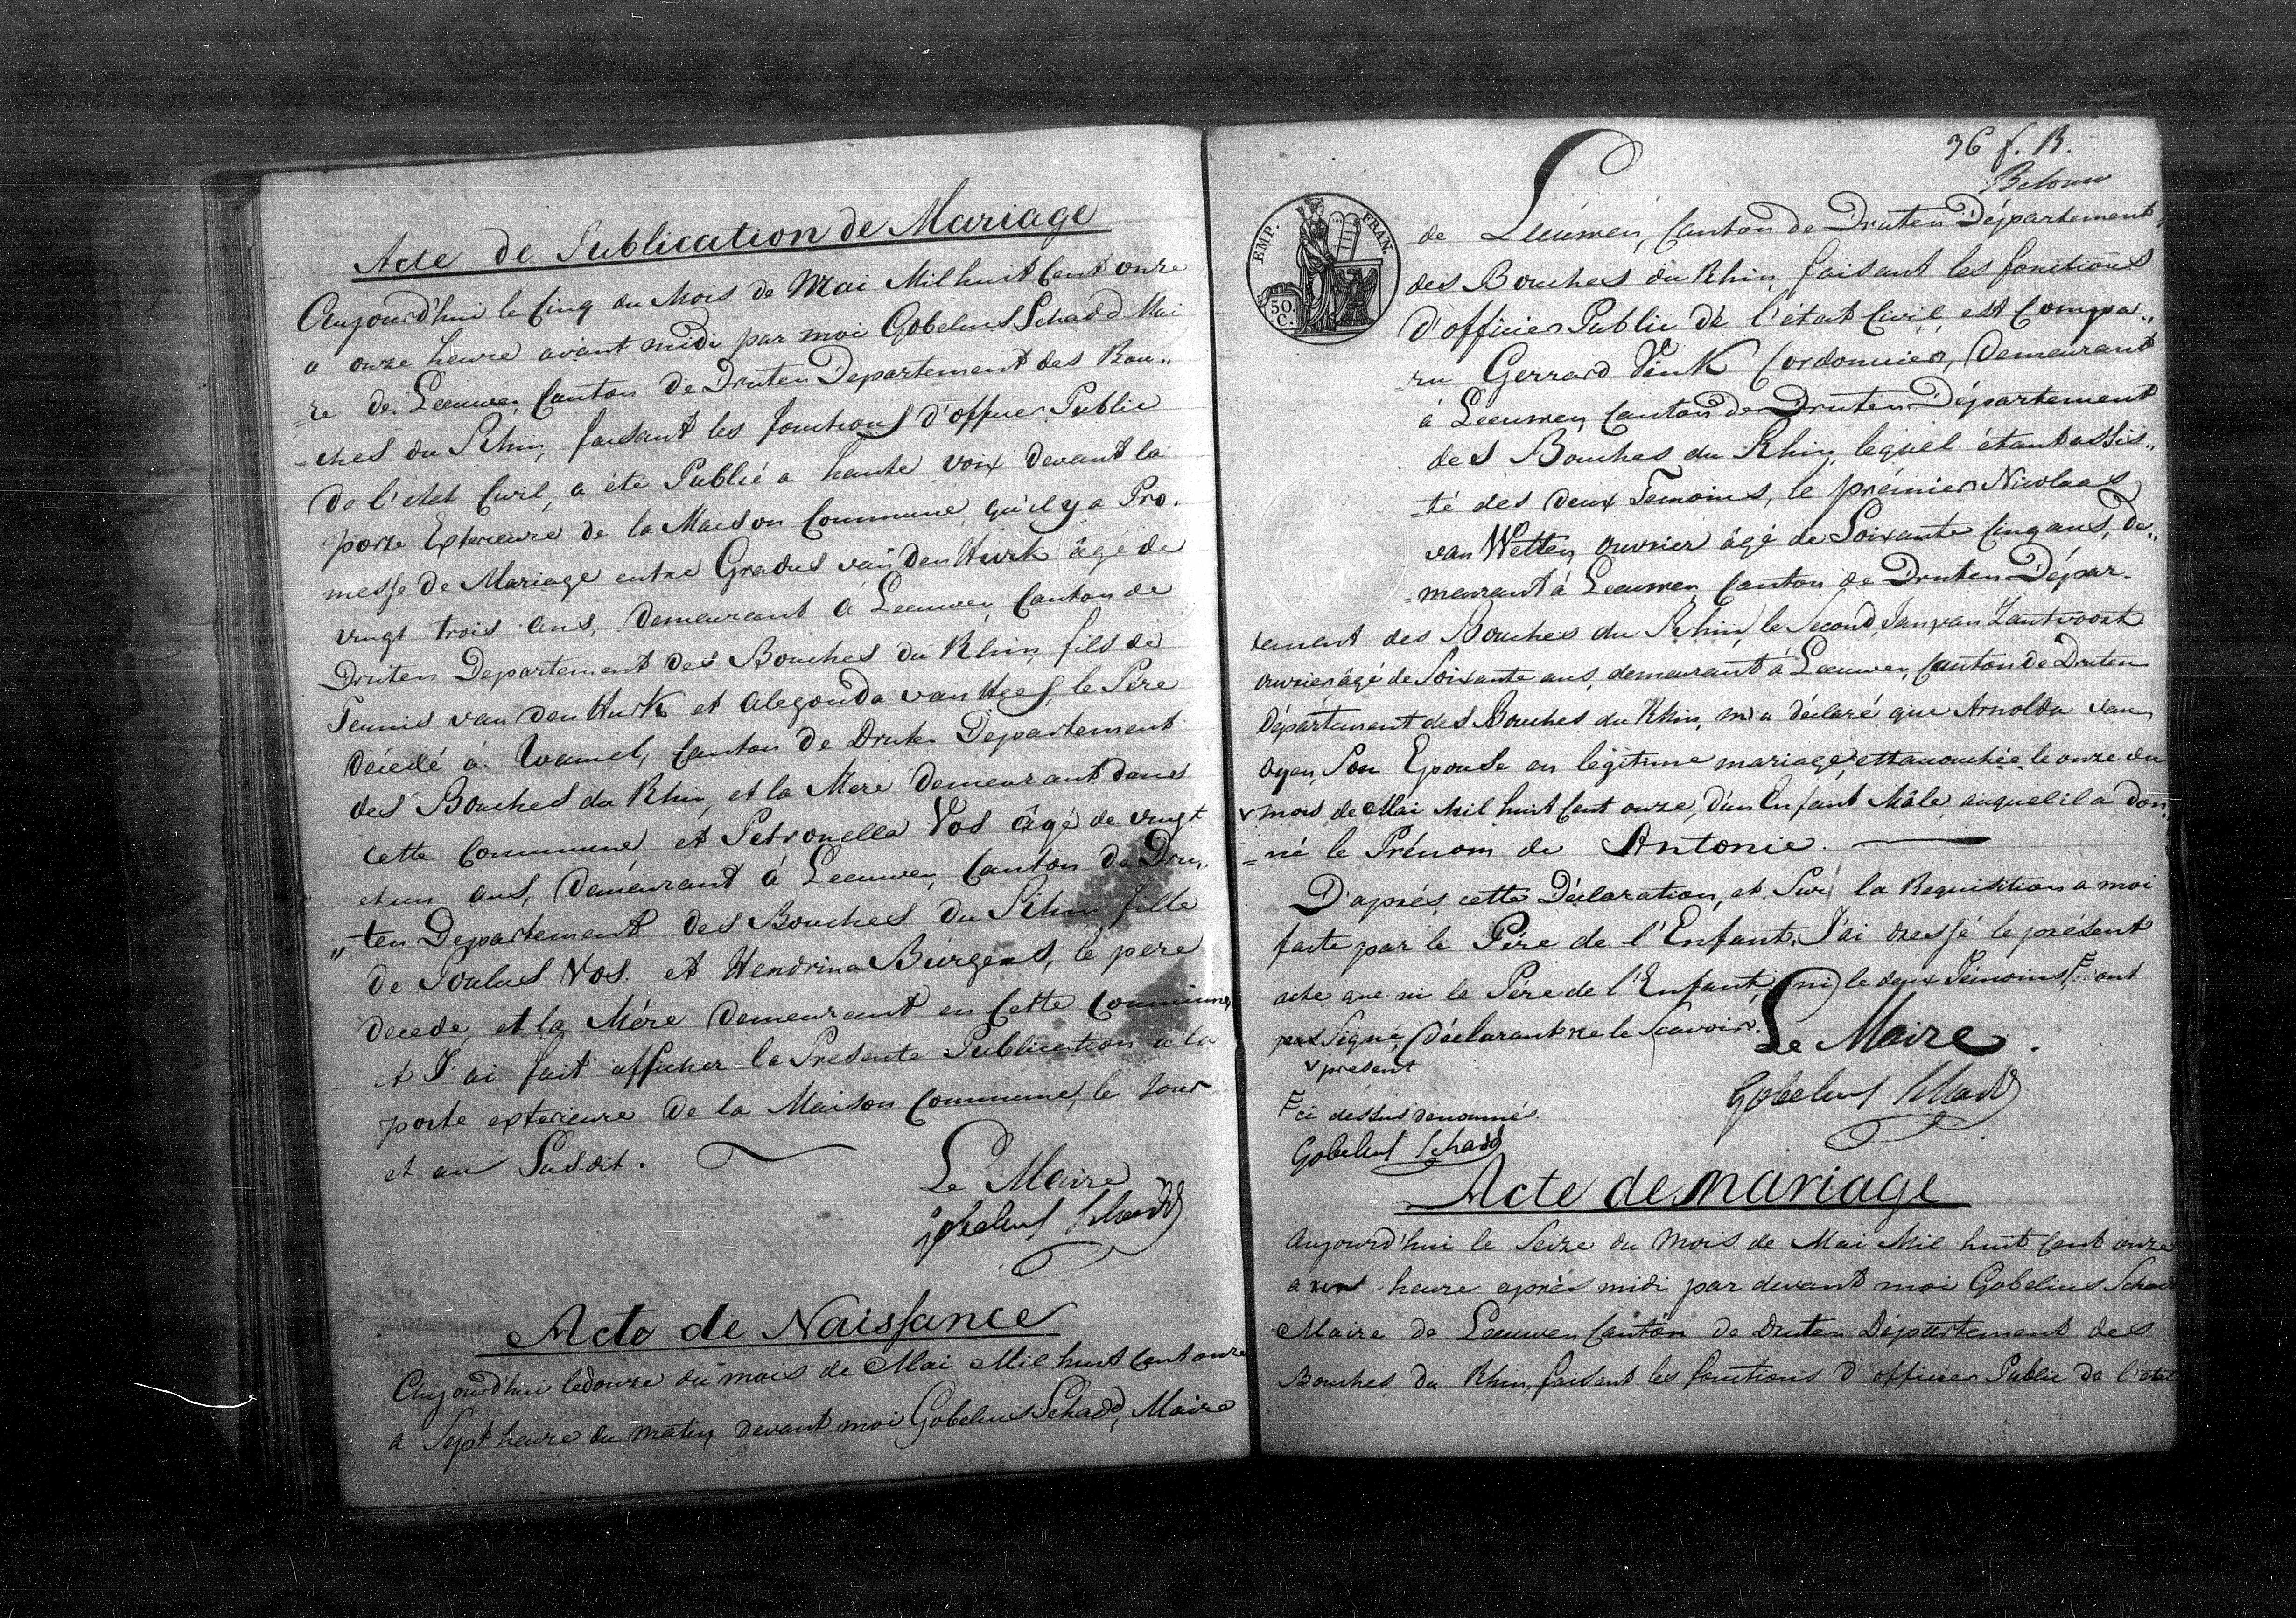 Acte de Publication de Mariage
Aujourd'hui le Cinq du Mois de Mai Mil huit Cent onze
a onze heure avant midi par moi Gobelius Schadd Mai
=re de Leeuwen Canton de Druten Departement des Bou„
=ches du Rhin, faisant les fonctions d'officier Public
de l'état Civil, a été Publié a haute voix devant la
porte Exterieure de la Maison Commune, qu'il y a Pro.
messe de Mariage entre Gradus van den Hurk âgé de
vingt trois ans, demeurant à Leeuwen Canton de
Druten Departement des Bouches du Rhin, fils de
Teunis van den Hurk et Alegonda van Hees, le Pére
décedé à Wamel, Canton de Druten Departement
des Bouches du Rhin, et la Mere demeurant dans
cette Commune, et Petronella Vos âgé de vingt
et un ans, demeurant à Leeuwen, Canton de Dru„
„ten Departement des Bouches du Rhin fille
de Poulus Vos et Hendrina Burgers, le pere
decede, et la Mére demeurant en Cette Commune
et J'ai fait afficher la Presente Publication a la
porte exterieure de la Maison Commune, le Jour
et an Susdit.
Le Maire
Gobelius Schadd
Acte de Naissance
Aujourd'hui le douze du mois de Mai Mil huit Cent onze
a Sept heure du matin, devant moi Gobelius Schadd, Maire
36 f. B.
EMP. FRAN.
50 C.
de Leeuwen, Canton de Druten Département
des Bouches du Rhin, faisant les fonctions
d'officier Public de l'état Civil, est Compa„
=ru Gerrard Vink Cordonnier, Demeurant
à Leeuwen Canton de Druten Département
des Bouches du Rhin, lequel étant assis„
=té des deux Temoins, le prémier Nicolaas
van Wetten ouvrier âgé de Soixante Cinq ans, de„
=meurant à Leeuwen Canton de Druten Dépar-
tement des Bouches du Rhin, le Second Jan van Zantvoort
ouvrier âgé de Soixante ans, demeurant à Leeuwen, Canton de Druten
Département des Bouches du Rhin, m'a déclaré que Arnolda van
Oyen, Son Epouse en légitime mariage, est accouchée le onze du
v mois de Mai Mil huit Cent onze, d'un Enfant Mâle, auquel il a don
=né le Prénom de Antonie.
D'aprés cette Déclaration, et Sur la Requisition a moi
faite par le Pére de l'Enfant, J'ai dressé le présent
acte que ni le Pére de l'Enfant, ni le deux Témoins, F ont
pas Signé, Déclarant ne le Scavoir.
Le Maire.
v present
F ci dessus denommés.
Gobelius Schadd
Gobelius Schadd
Acte de mariage
Aujourd'hui le Seize du Mois de Mai Mil huit Cent onze
a heure après midi par devant moi Gobelius Schadd
Maire de Leeuwen Canton de Druten Département des
Bouches du Rhin, faisant les fonctions d'officier Public de l'état